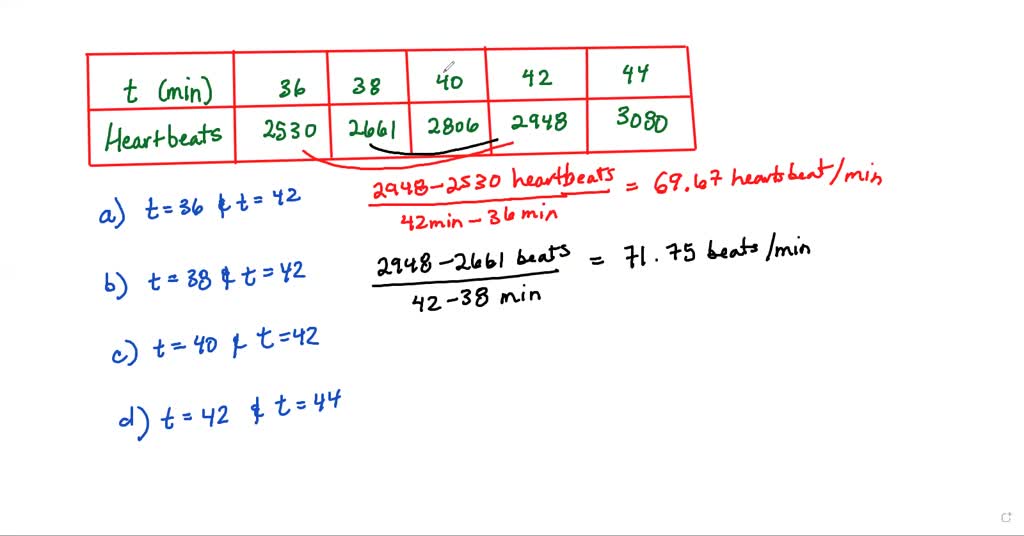 t (min) 36 38 40 42 44
Heartbeats 2530 2661 2806 2948 3080
a) t = 36 & t = 42
2948 - 2530 heartbeats
42min - 36 min
= 69.67 heartsbeat/min
b) t = 38 & t = 42
2948 - 2661 beats
42 - 38 min
= 71.75 beats/min
c) t = 40 & t = 42
d) t = 42 & t = 44